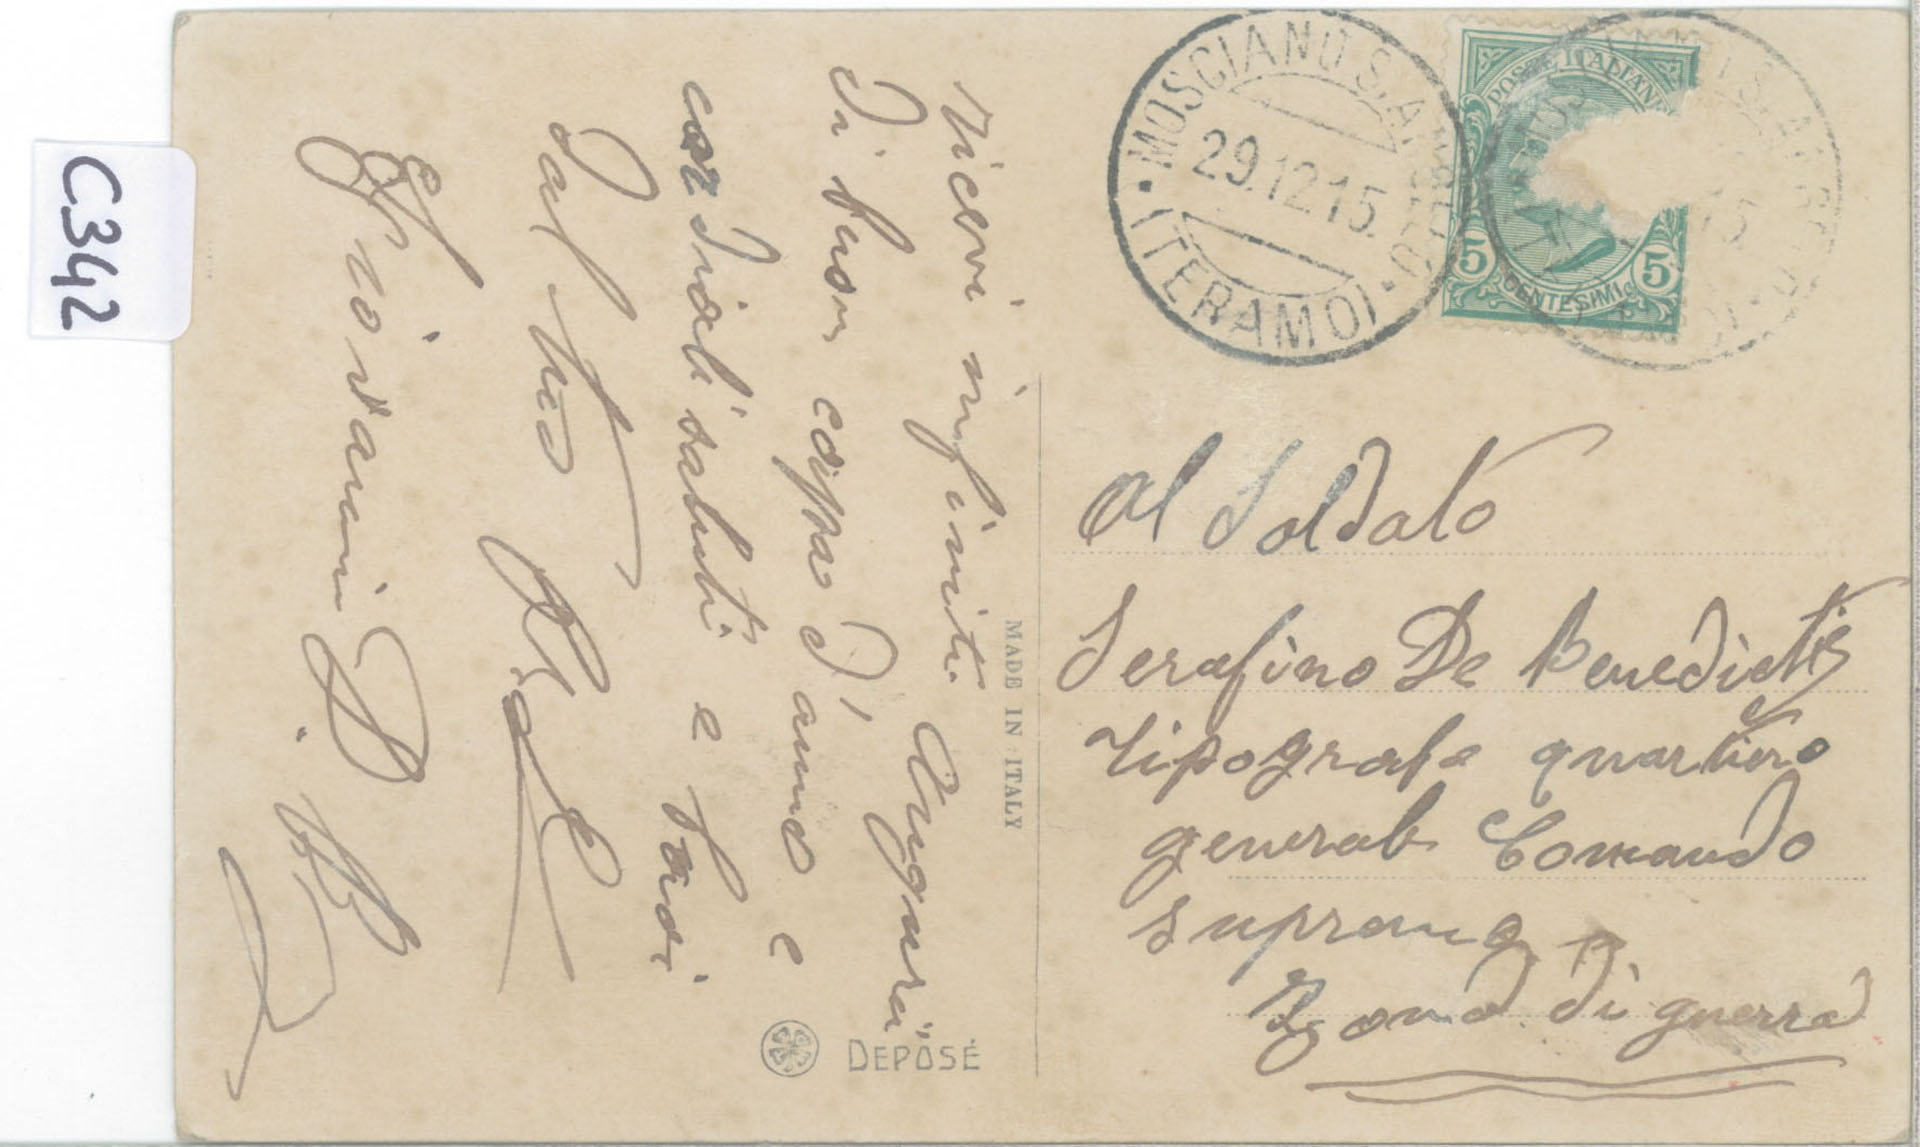 C342
MOSCIANO S. ANGELO
29.12.15.
(TERAMO)
POSTE ITALIANE
5 5
CENTESIMI
Ricevi infiniti Auguri
di buon capo d'anno e
cordiali saluti e baci
dal tuo
Giovanni D. B.
MADE IN ITALY
DEPOSÉ
Al Soldato
Serafino De Benedictis
Tipografo quartiero
generale Comando
supremo
Zona di guerra